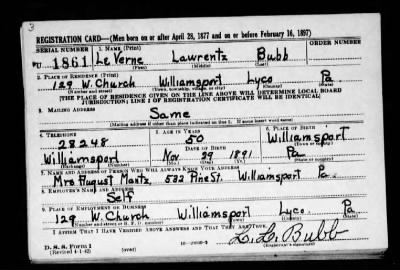 REGISTRATION CARD—(Men born on or after April 28, 1877 and on or before February 16, 1897)
SERIAL NUMBER 1. NAME (Print) ORDER NUMBER
U 1861 Le Verne Lawrentz Bubb
(First) (Middle) (Last)
2. PLACE OF RESIDENCE (Print)
129 W. Church Williamsport Lyco Pa.
(Number and street) (Town, township, village, or city) (County) (State)
[THE PLACE OF RESIDENCE GIVEN ON THE LINE ABOVE WILL DETERMINE LOCAL BOARD
JURISDICTION; LINE 2 OF REGISTRATION CERTIFICATE WILL BE IDENTICAL]
3. MAILING ADDRESS
Same
(Mailing address if other than place indicated on line 2. If same insert word same)
4. TELEPHONE 5. AGE IN YEARS 6. PLACE OF BIRTH
28248 50 Williamsport
DATE OF BIRTH
Williamsport Nov. 29 1891 Pa
7. NAME AND ADDRESS OF PERSON WHO WILL ALWAYS KNOW YOUR ADDRESS
Mrs August Maitz, 582 Pine St. Williamsport Pa.
8. EMPLOYER'S NAME AND ADDRESS
Self
9. PLACE OF EMPLOYMENT OR BUSINESS
129 W. Church Williamsport Lyco. Pa
(Number and street or R. F. D. number) (Town) (County) (State)
I AFFIRM THAT I HAVE VERIFIED ABOVE ANSWERS AND THAT THEY ARE TRUE.
D. S. S. Form 1
(Revised 4-1-42) (over) L. L. Bubb
(Registrant's signature)